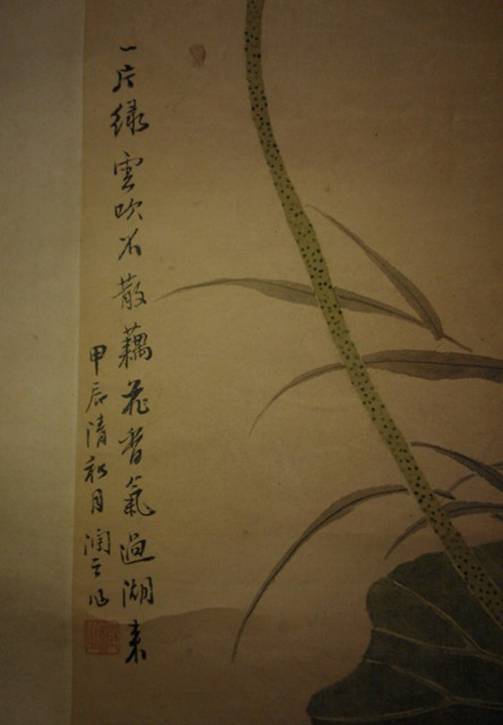 一片绿雲吹不散藕花香氣過湖来
甲辰清秋月潤之作